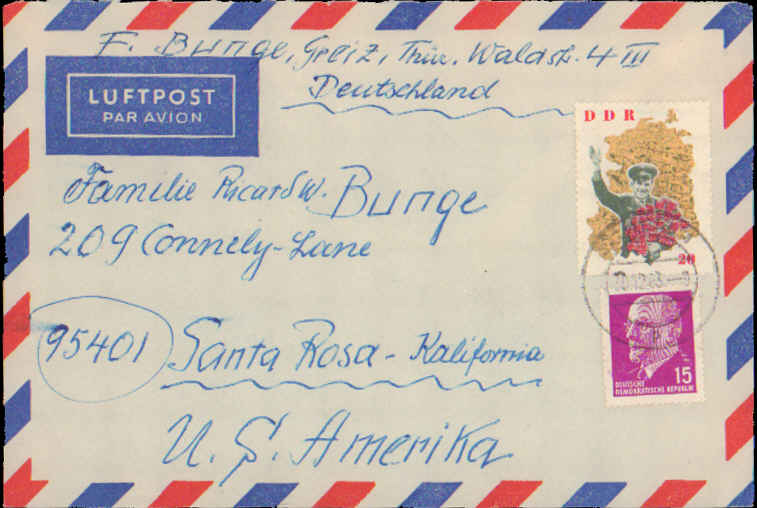 F. Bunge, Greiz, Thür. Waldstr. 4 III
Deutschland
LUFTPOST
PAR AVION
DDR
20
Familie Ricard W. Bunge
209 Connely-Lane
95401 Santa Rosa - Kalifornia
U. S. Amerika
15
DEUTSCHE
DEMOKRATISCHE REPUBLIK